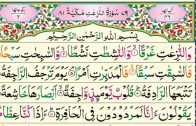 سُوْرَةُ النّٰزِعٰتِ مَكِّيَّةٌ
بِسْمِ اللهِ الرَّحْمٰنِ الرَّحِيْمِ
وَالنّٰزِعٰتِ غَرْقًا وَّالنّٰشِطٰتِ نَشْطًا وَّالسّٰبِحٰتِ سَبْحًا
فَالسّٰبِقٰتِ سَبْقًا فَالْمُدَبِّرٰتِ اَمْرًا يَوْمَ تَرْجُفُ الرَّاجِفَةُ
تَتْبَعُهَا الرَّادِفَةُ قُلُوْبٌ يَّوْمَئِذٍ وَّاجِفَةٌ اَبْصَارُهَا خَاشِعَةٌ
يَقُوْلُوْنَ ءَاِنَّا لَمَرْدُوْدُوْنَ فِي الْحَافِرَةِ ءَاِذَا كُنَّا عِظَامًا